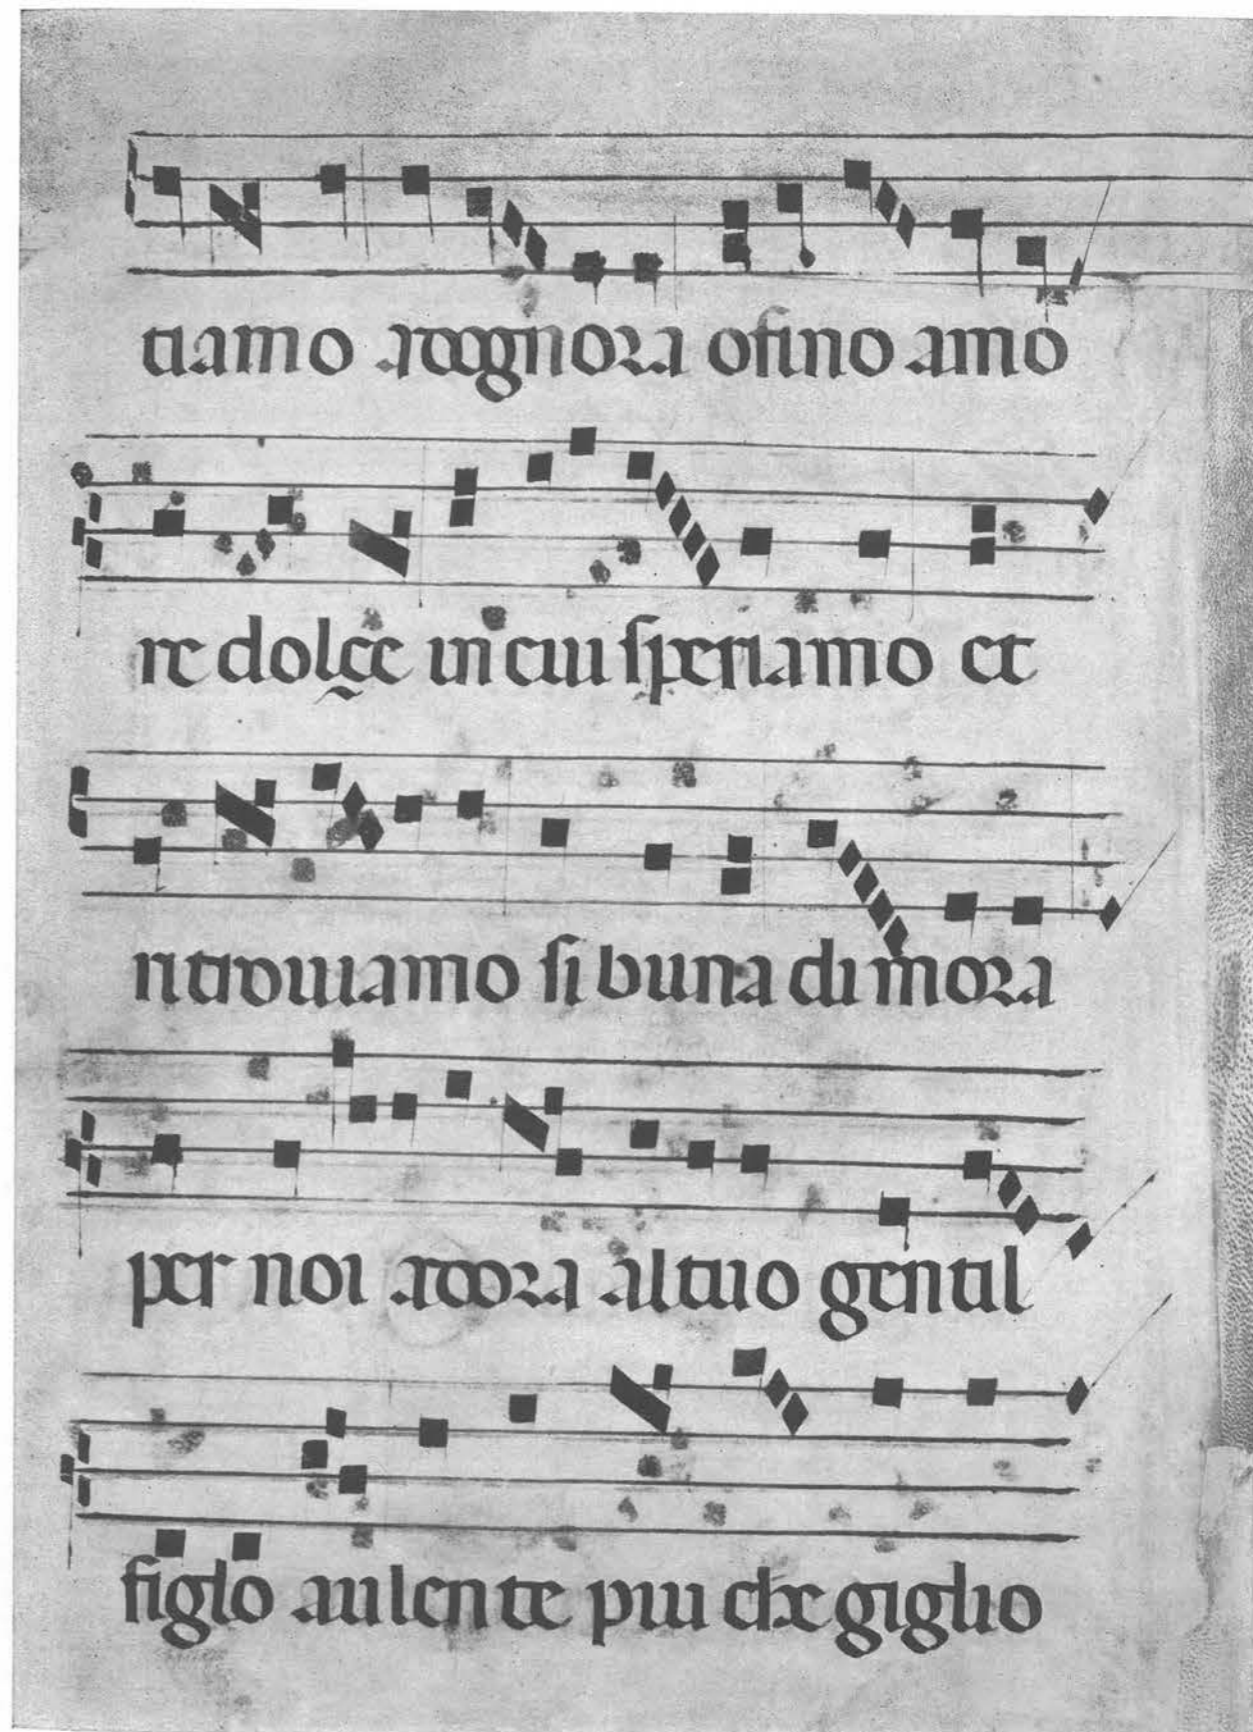 tiamo adognora ofino amo
re dolçe in cui speriamo et
ritrouiamo si buna dimora
per noi adora altuo gentil
figlo aulente piu che giglio